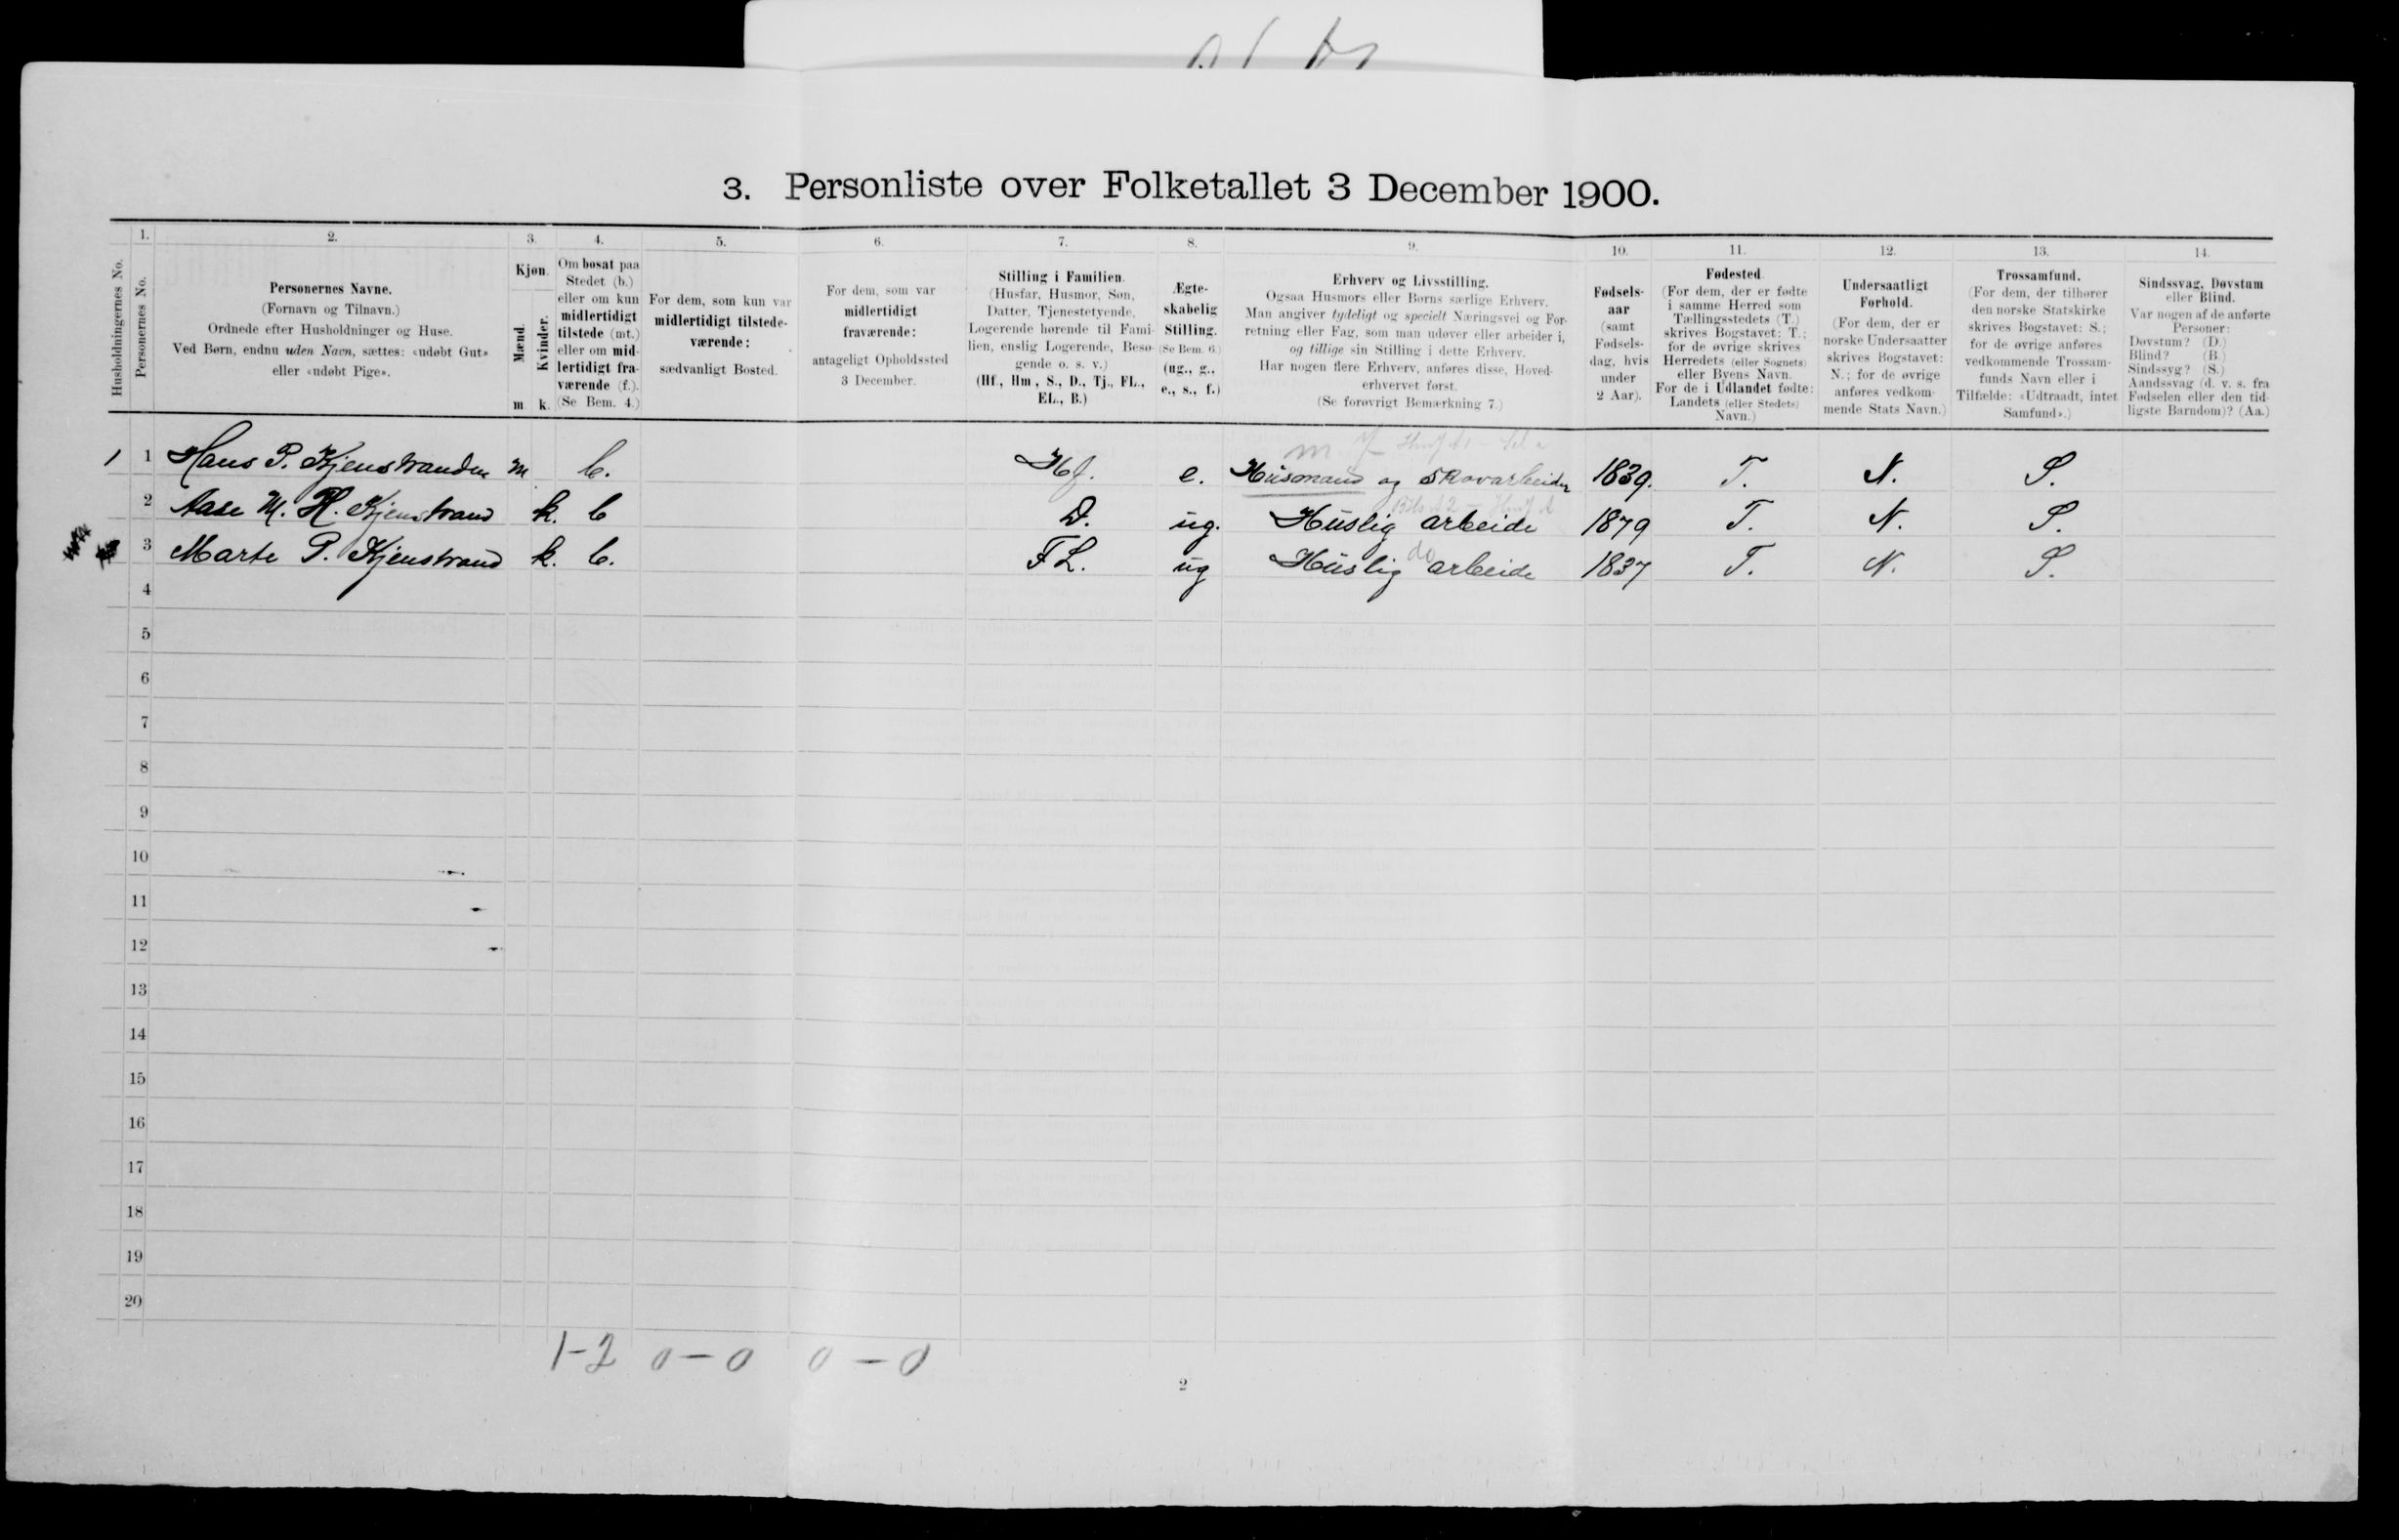 3. Personliste over Folketallet 3 December 1900.
1. 2. 3. 4. 5. 6. 7. 8. 9. 10. 11. 12. 13. 14.
Husholdningernes No.
Personernes No.
Personernes Navne.
(Fornavn og Tilnavn.)
Ordnede efter Husholdninger og Huse.
Ved Børn, endnu uden Navn, sættes: «udøbt Gut»
eller «udøbt Pige».
Kjøn.
Mænd.
Kvinder.
m k.
Om bosat paa
Stedet (b.)
eller om kun
midlertidigt
tilstede (mt.)
eller om mid-
lertidigt fra-
værende (f.).
(Se Bem. 4.)
For dem, som kun var
midlertidigt tilstede-
værende:
sædvanligt Bosted.
For dem, som var
midlertidigt
fraværende:
antageligt Opholdssted
3 December.
Stilling i Familien.
(Husfar, Husmor, Søn,
Datter, Tjenestetyende,
Logerende hørende til Fami-
lien, enslig Logerende, Besø-
gende o. s. v.)
(Hf., Hm., S., D., Tj., FL.,
EL., B.)
Ægte-
skabelig
Stilling.
(Se Bem. 6.)
(ug., g.,
e., s., f.)
Erhverv og Livsstilling.
Ogsaa Husmors eller Børns særlige Erhverv.
Man angiver tydeligt og specielt Næringsvei og For-
retning eller Fag, som man udøver eller arbeider i,
og tillige sin Stilling i dette Erhverv.
Har nogen flere Erhverv, anføres disse, Hoved-
erhvervet først.
(Se forøvrigt Bemærkning 7.)
Fødsels-
aar
(samt
Fødsels-
dag, hvis
under
2 Aar).
Fødested.
(For dem, der er fødte
i samme Herred som
Tællingsstedets (T.)
skrives Bogstavet: T.;
for de øvrige skrives
Herredets (eller Sognets)
eller Byens Navn.
For de i Udlandet fødte:
Landets (eller Stedets)
Navn.)
Undersaatligt
Forhold.
(For dem, der er
norske Undersaatter
skrives Bogstavet:
N.; for de øvrige
anføres vedkom-
mende Stats Navn.)
Trossamfund.
(For dem, der tilhører
den norske Statskirke
skrives Bogstavet: S.;
for de øvrige anføres
vedkommende Trossam-
funds Navn eller i
Tilfælde: «Udtraadt, intet
Samfund».)
Sindssvag, Døvstum
eller Blind.
Var nogen af de anførte
Personer:
Døvstum? (D.)
Blind? (B.)
Sindssyg? (S.)
Aandssvag (d. v. s. fra
Fødselen eller den tid-
ligste Barndom)? (Aa.)
1 1 Hans P. Kjenstranden m b. Hf. e. Husmand og Skovarbeider 1839. T. N. S.
2 Aase M. H. Kjenstrand k. b D. ug. Huslig arbeide 1879 T. N. S.
do
3 Marte P. Kjenstrand k. b. FL. ug Huslig arbeide 1837 T. N. S.
4
5
6
7
8
9
10
11
12
13
14
15
16
17
18
19
20
1-2 0-0 0-0
2